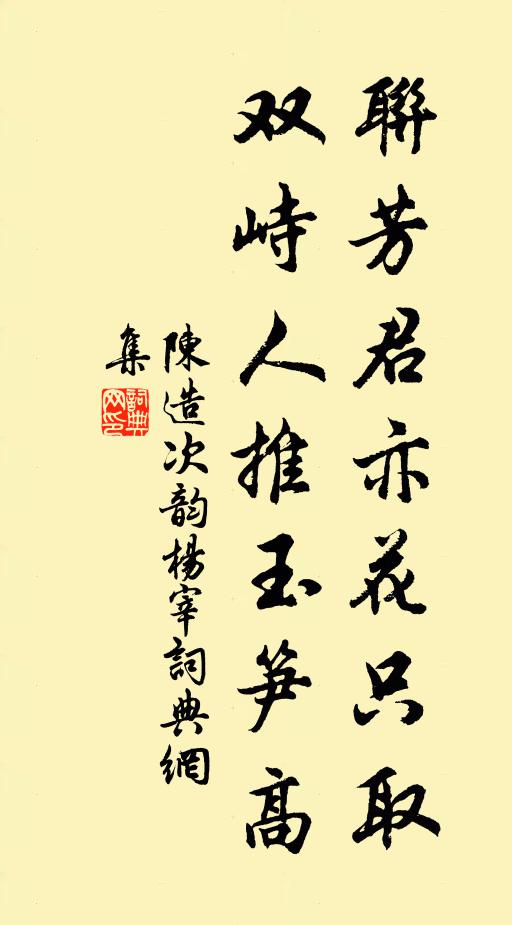 聯芳君亦花只取
双峙人推玉笋高
陳造次韵楊宰詞典網
集
詞典网印